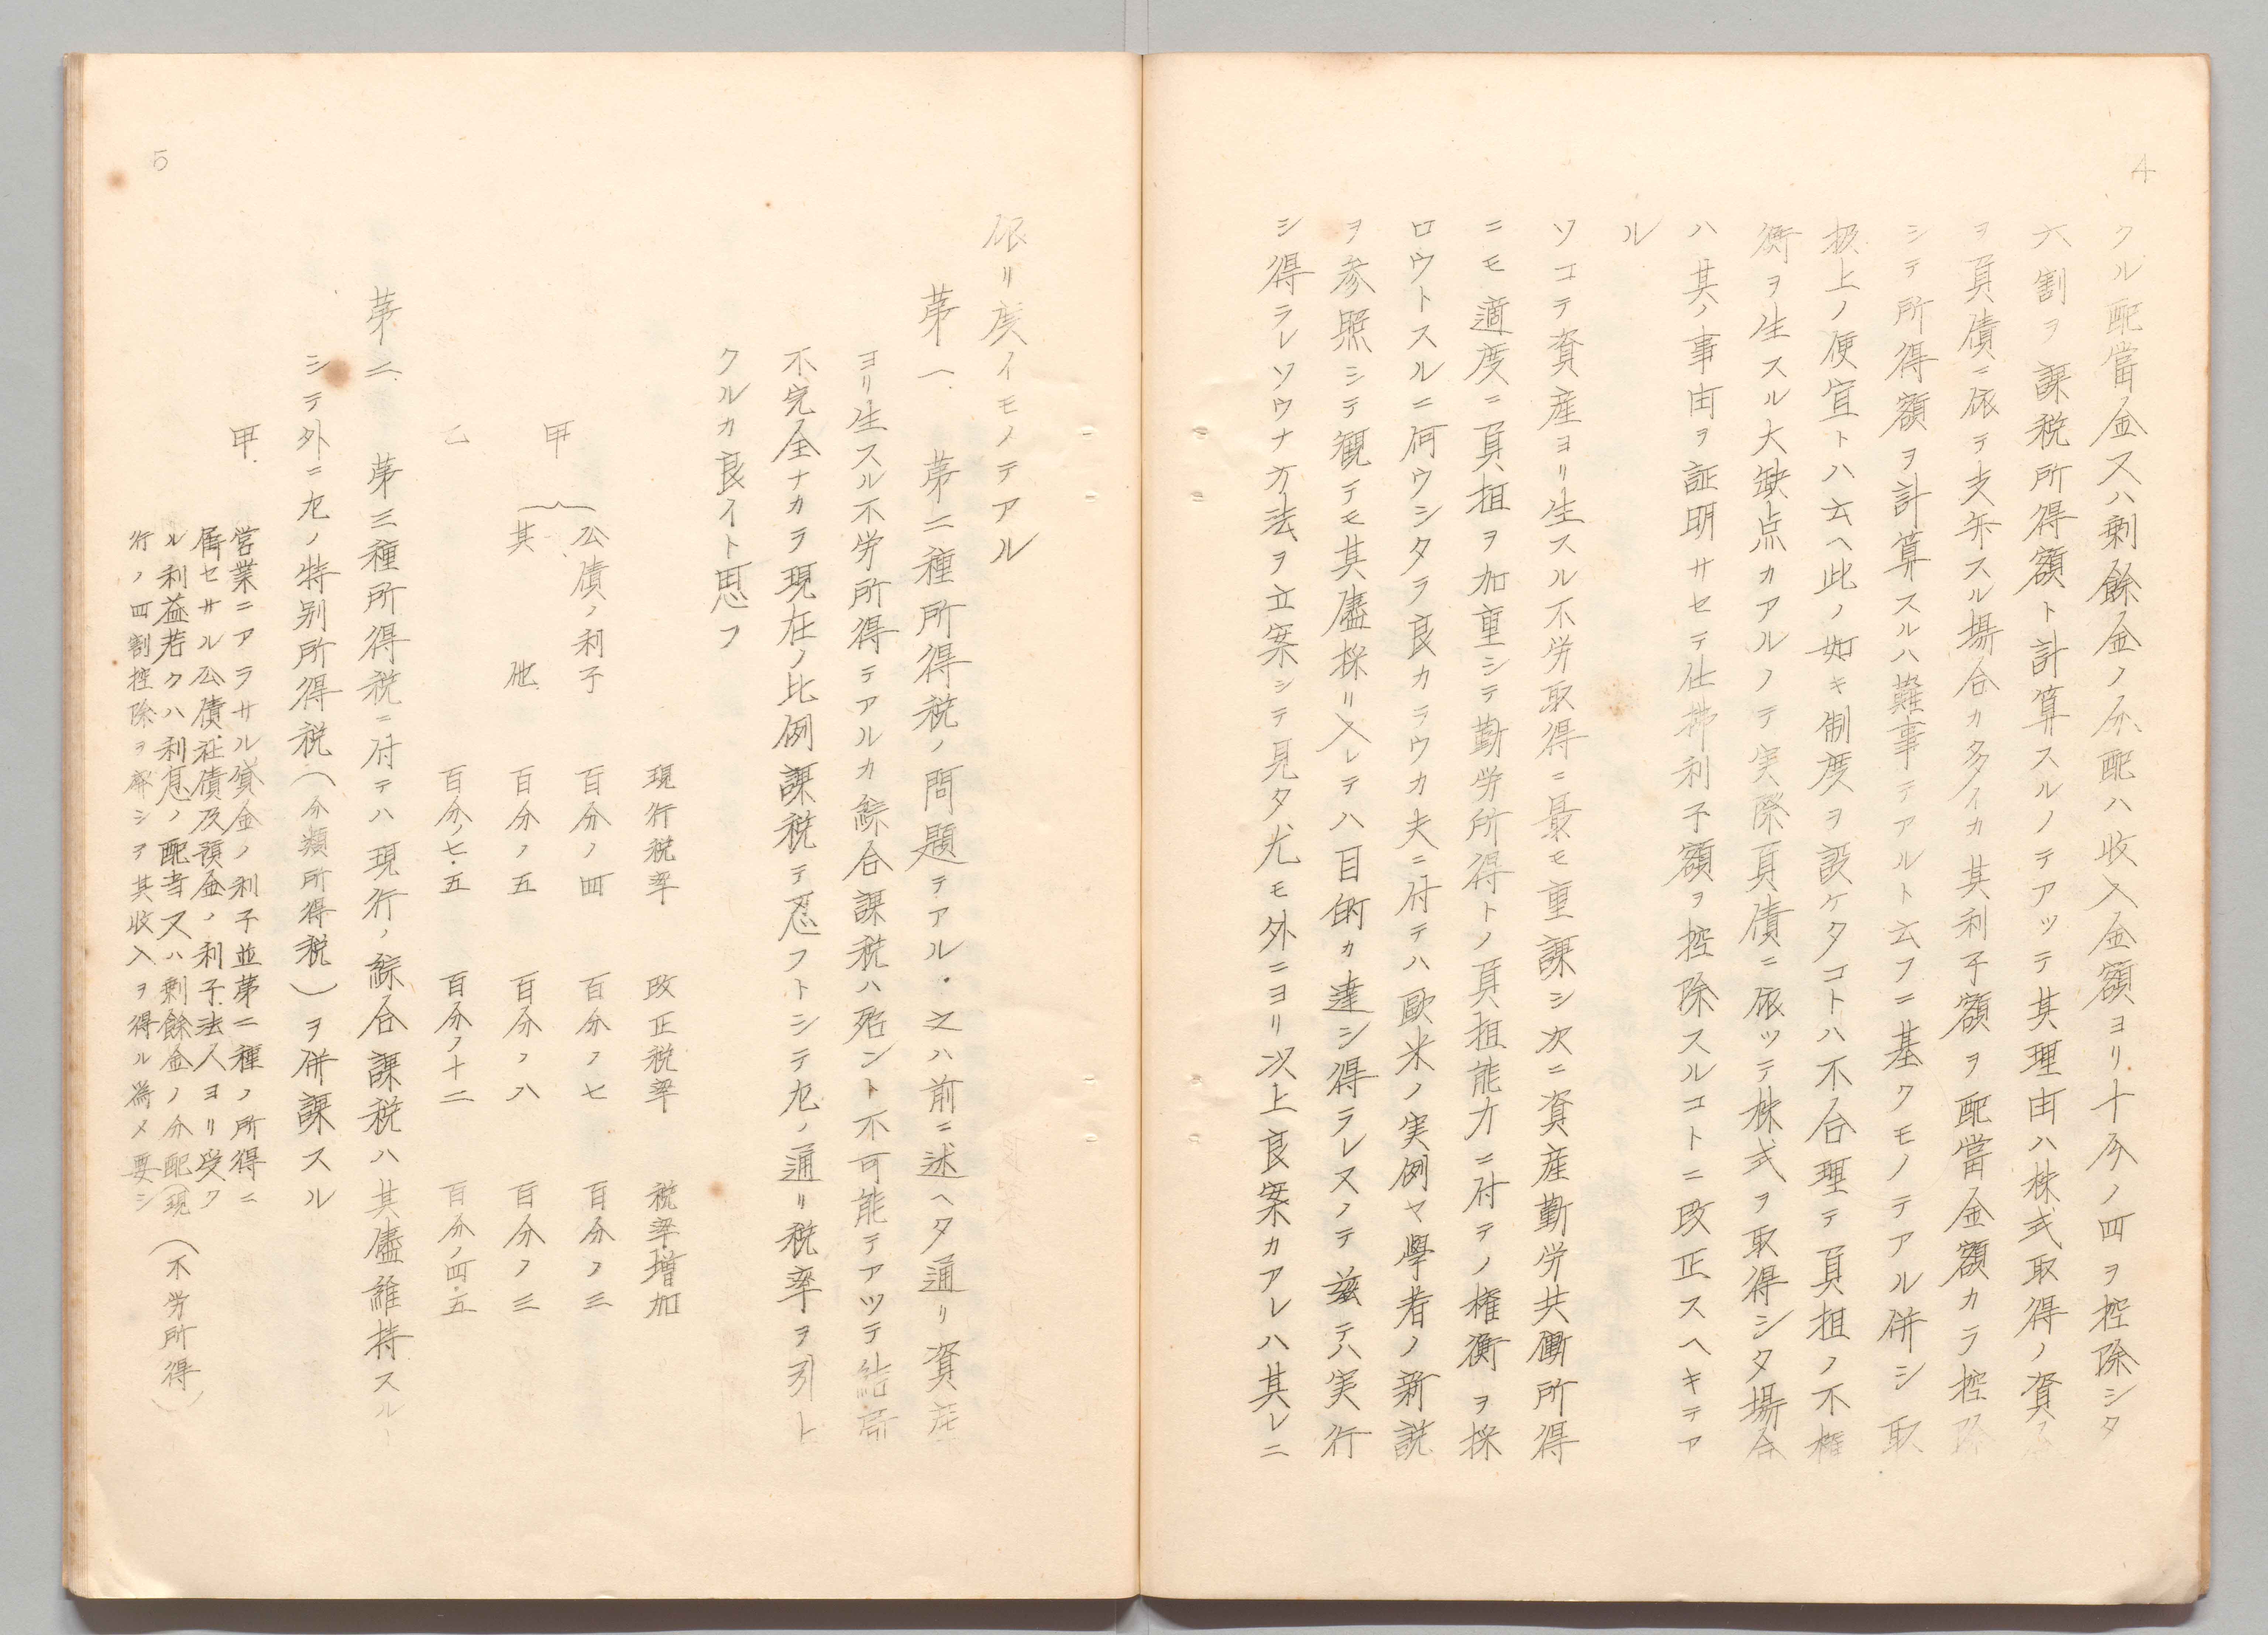 4
クル配當金又ハ剰餘金ノ分配ハ收入金額ヨリ十分ノ四ヲ控除シタ
六割ヲ課税所得額ト計算スルノテアツテ其理由ハ株式取得ノ資
ヲ負債ニ依テ支弁スル場合カ多イカ其利子額ヲ配當金額カラ控除
シテ所得額ヲ計算スルハ難事テアルト云フニ基クモノテアル併シ取
扱上ノ便宜トハ云ヘ此ノ如キ制度ヲ設ケタコトハ不合理テ負担ノ不權
衡ヲ生スル大缺点カアルノテ実際負債ニ依ツテ株式ヲ取得シタ場合
ハ其ノ事由ヲ証明サセテ仕拂利子額ヲ控除スルコトニ改正スヘキテア
ル
ソコテ資産ヨリ生スル不労取得ニ最モ重課シ次ニ資産勤労共働所得
ニモ適度ニ負担ヲ加重シテ勤労所得トノ負担能力ニ付テノ権衡ヲ採
ロウトスルニ何ウシタラ良カラウカ夫ニ付テハ歐米ノ実例ヤ學者ノ新説
ヲ参照シテ観テモ其儘採リ入レテハ目的カ達シ得ラレスノテ茲テハ実行
シ得ラレソウナ方法ヲ立案シテ見タ尤モ外ニヨリ以上良案カアレハ其レニ
5
依リ度イモノテアル
第一 第二種所得税ノ問題テアル・之ハ前ニ述ヘタ通リ資産
ヨリ生スル不労所得テアルカ綜合課税ハ殆ント不可能テアツテ結局
不完全ナカラ現在ノ比例課税テ忍フトシテ左ノ通リ税率ヲ引上
クルカ良イト思フ
現行税率 改正税率 税率増加
甲 公債ノ利子 百分ノ四 百分ノ七 百分ノ三
其他 百分ノ五 百分ノ八 百分ノ三
乙 百分ノ七・五 百分ノ十二 百分ノ四・五
第二 第三種所得税ニ付テハ現行ノ綜合課税ハ其儘維持スル
シテ外ニ左ノ特別所得税(分類所得税)ヲ併課スル
甲 営業ニアラサル貸金ノ利子並第二種ノ所得ニ
属セサル公債社債及預金ノ利子法人ヨリ受ク
ル利益若クハ利息ノ配当又ハ剰餘金ノ分配(現
行ノ四割控除ヲ廃シヲ其收入ヲ得ル為メ要シ
(不労所得)